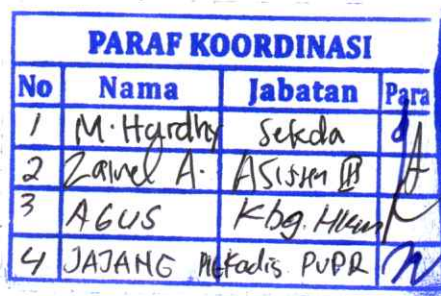 PARAF KOORDINASI
No Nama Jabatan Para
1 M. Hardhy Sekda
2 Zainel A. Asisten II
3 AGUS Kbg. Hkum
4 JAJANG Kadis PUPR